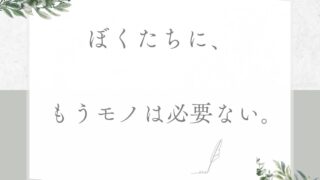 ぼくたちに、
もうモノは必要ない。